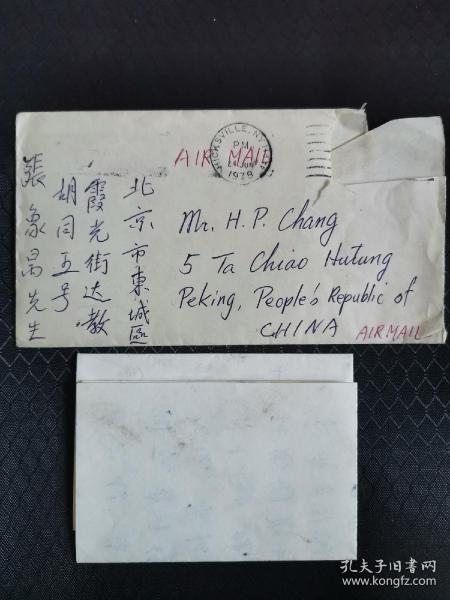 HICKSVILLE, N.Y.
PM
24 JUN
1978
AIR MAIL
北京市東城區
霞光街达教
胡同五号
張象昺先生
Mr. H. P. Chang
5 Ta Chiao Hutung
Peking, People's Republic of
CHINA
AIR MAIL
孔夫子旧书网
www.kongfz.com